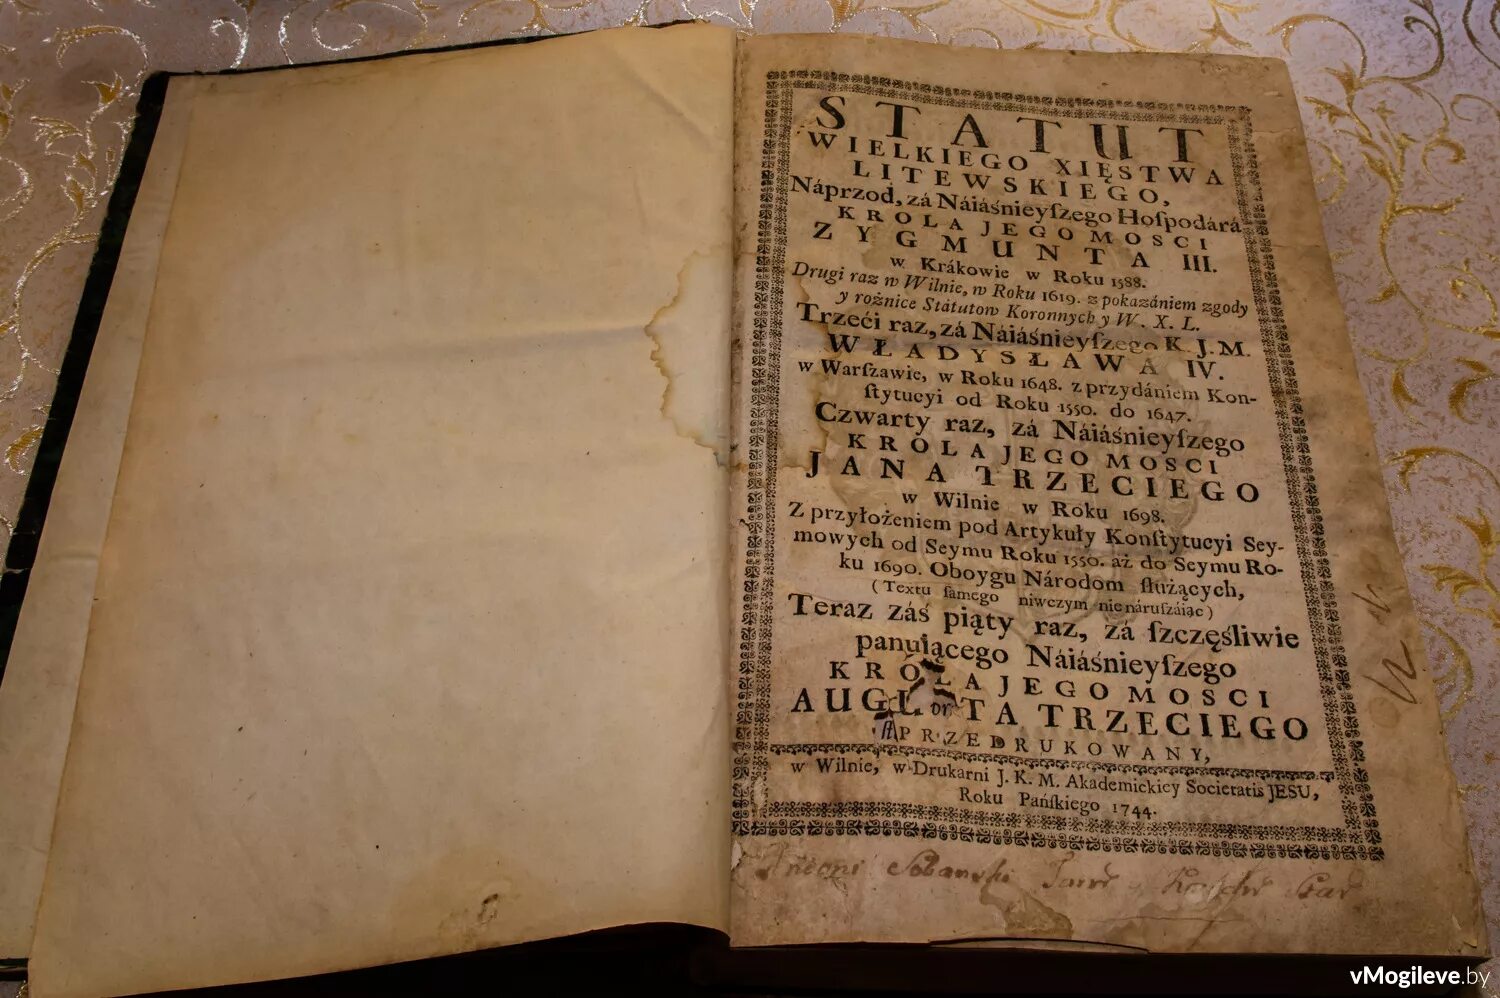 STATUT
WIELKIEGO XIĘSTWA
LITEWSKIEGO,
Náprzod, zá Náiáśnieyſzego Hoſpodárá
KROLA JEGO MOSCI
ZYGMUNTA III.
w Krákowie w Roku 1588.
Drugi raz w Wilnie, w Roku 1619. z pokazániem zgody
y rożnice Státutow Koronnych y W. X. L.
Trzeći raz, zá Náiáśnieyſzego K. J. M.
WŁADYSŁAWA IV.
w Warſzawie, w Roku 1648. z przydániem Kon-
ſtytucyi od Roku 1550. do 1647.
Czwarty raz, zá Náiáśnieyſzego
KRÓLA JEGO MOSCI
JANA TRZECIEGO
w Wilnie w Roku 1698.
Z przyłożeniem pod Artykuły Konſtytucyi Sey-
mowych od Seymu Roku 1550. aż do Seymu Ro-
ku 1690. Oboygu Národom ſłużących,
(Textu ſamego niwczym nie náruſzáiąc)
Teraz záś piąty raz, zá ſzczęśliwie
panuiącego Náiáśnieyſzego
KRÓLA JEGO MOSCI
TRZECIEGO
PRZEDRUKOWANY,
w Wilnie, w Drukarni J. K. M. Akademickiey Societatis JESU,
Roku Pańſkiego 1744.
vMogileve.by